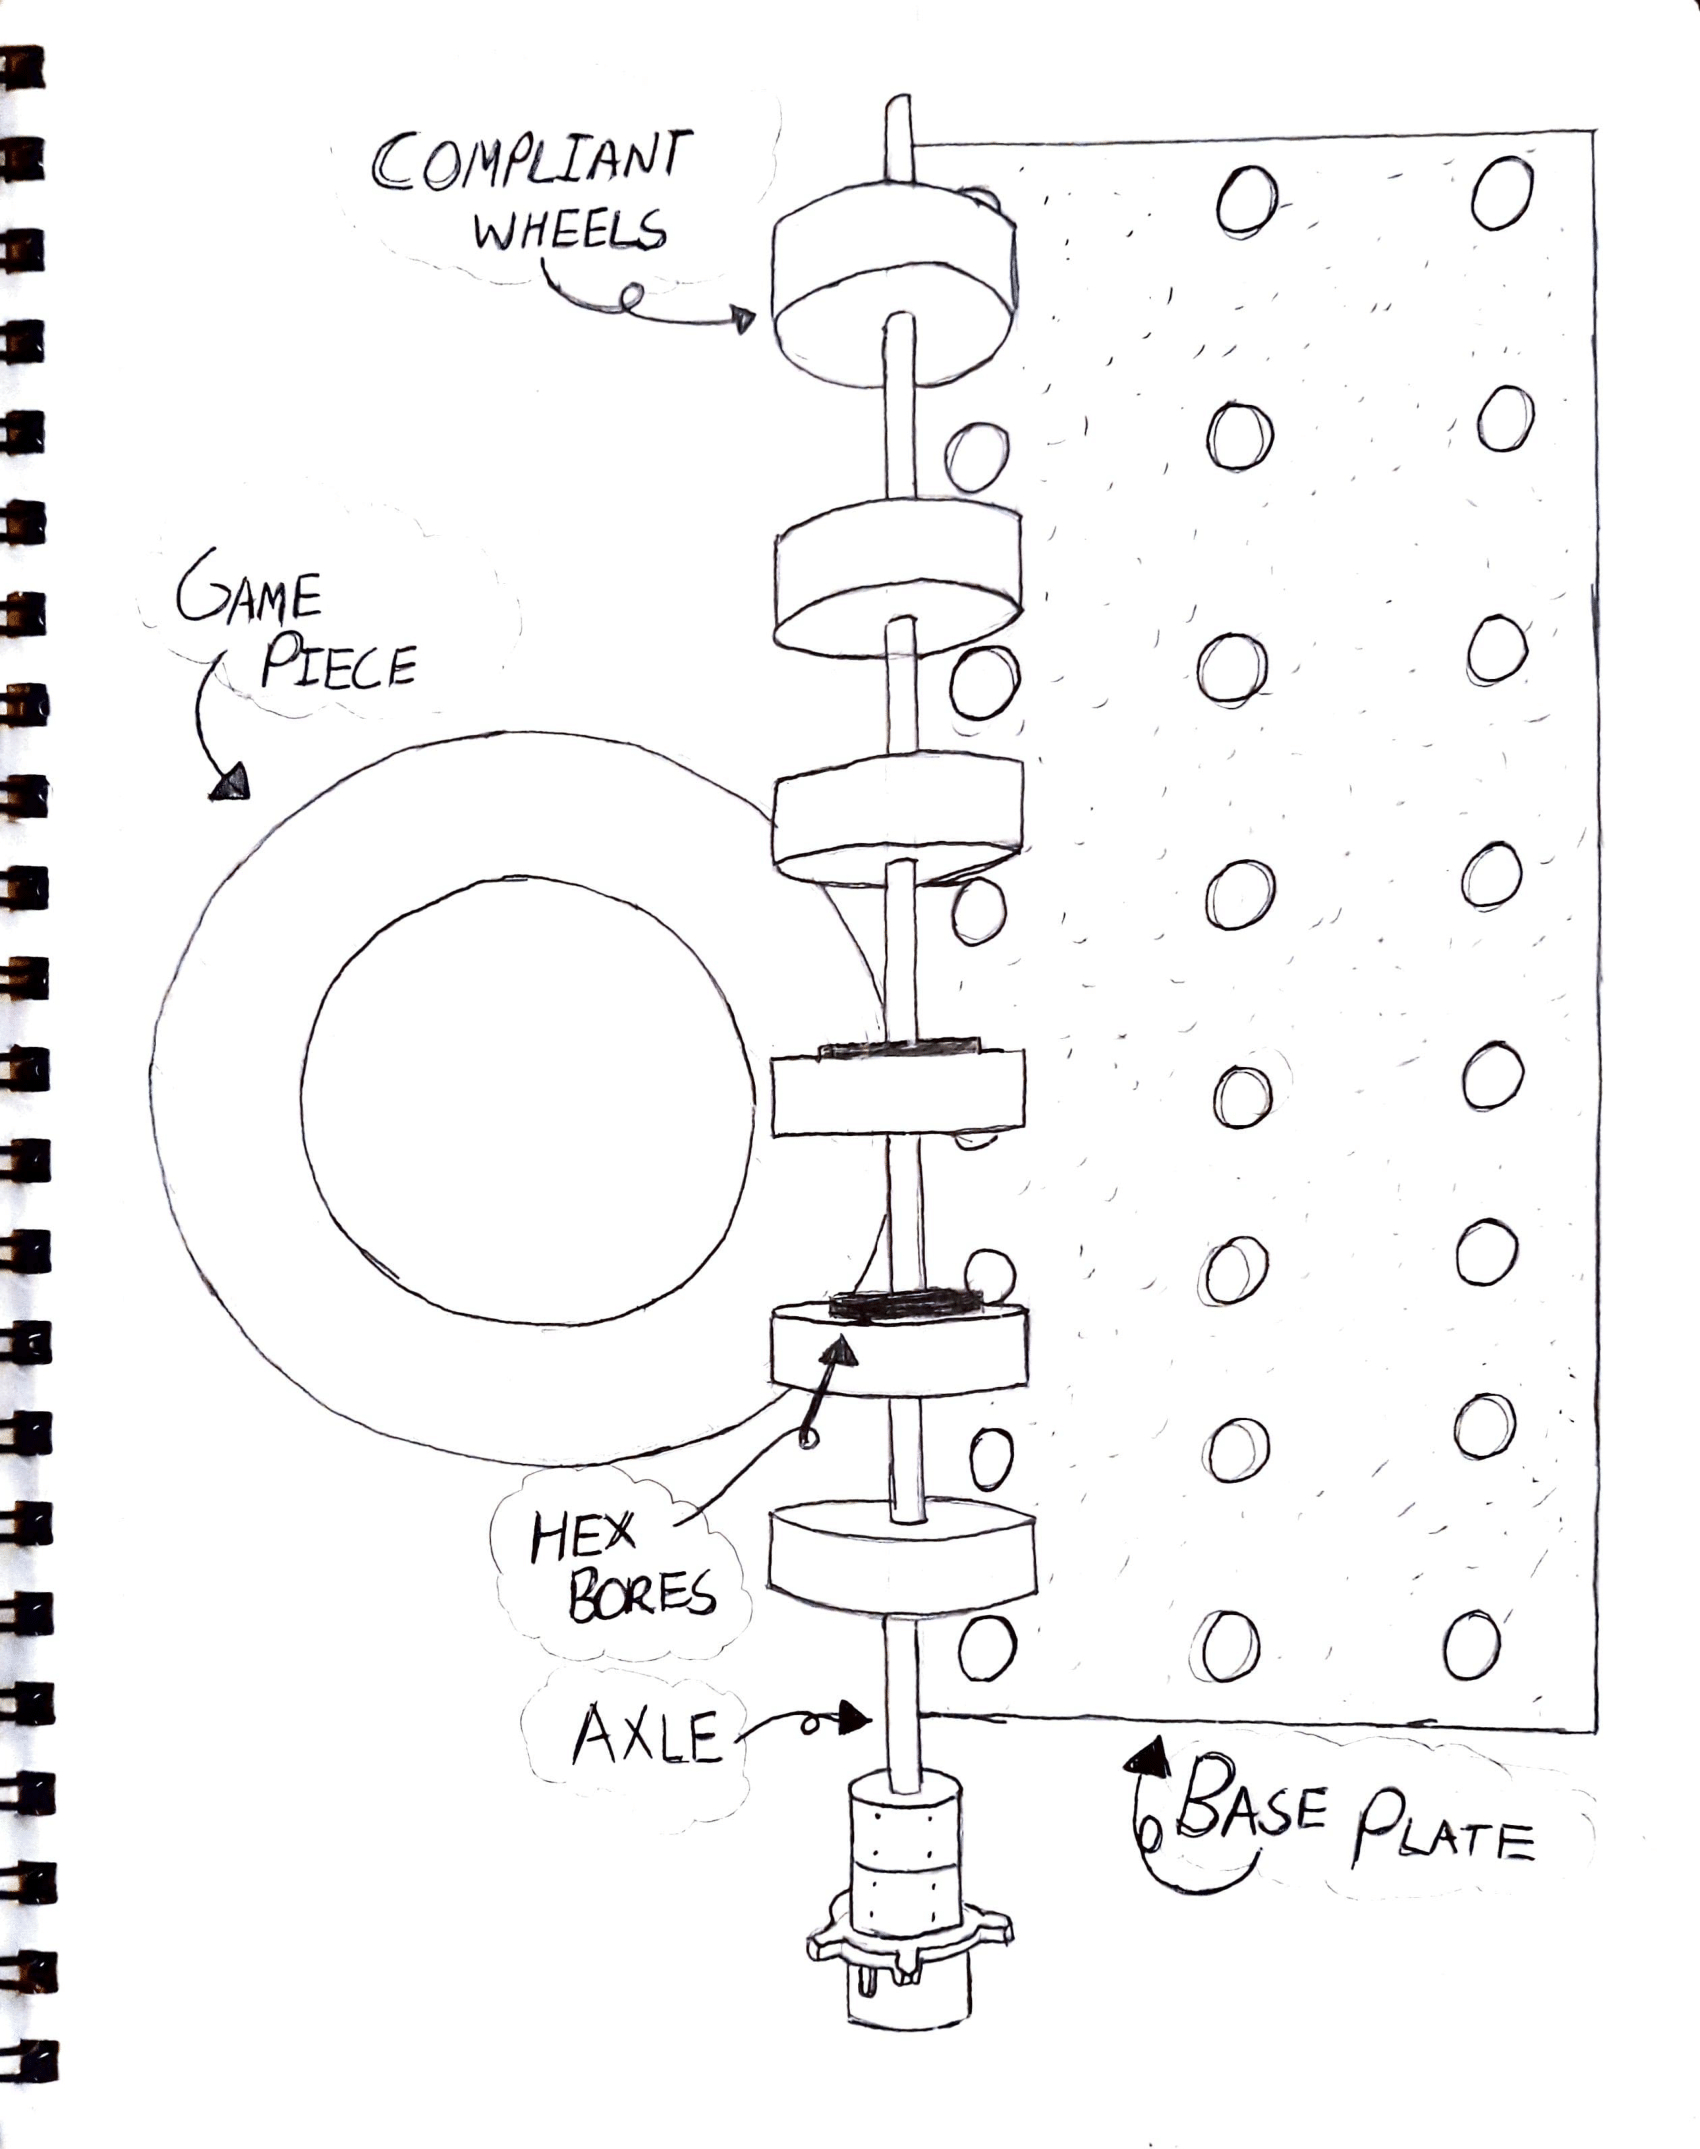 COMPLIANT
WHEELS
GAME
PIECE
HEX
BORES
AXLE
BASE PLATE